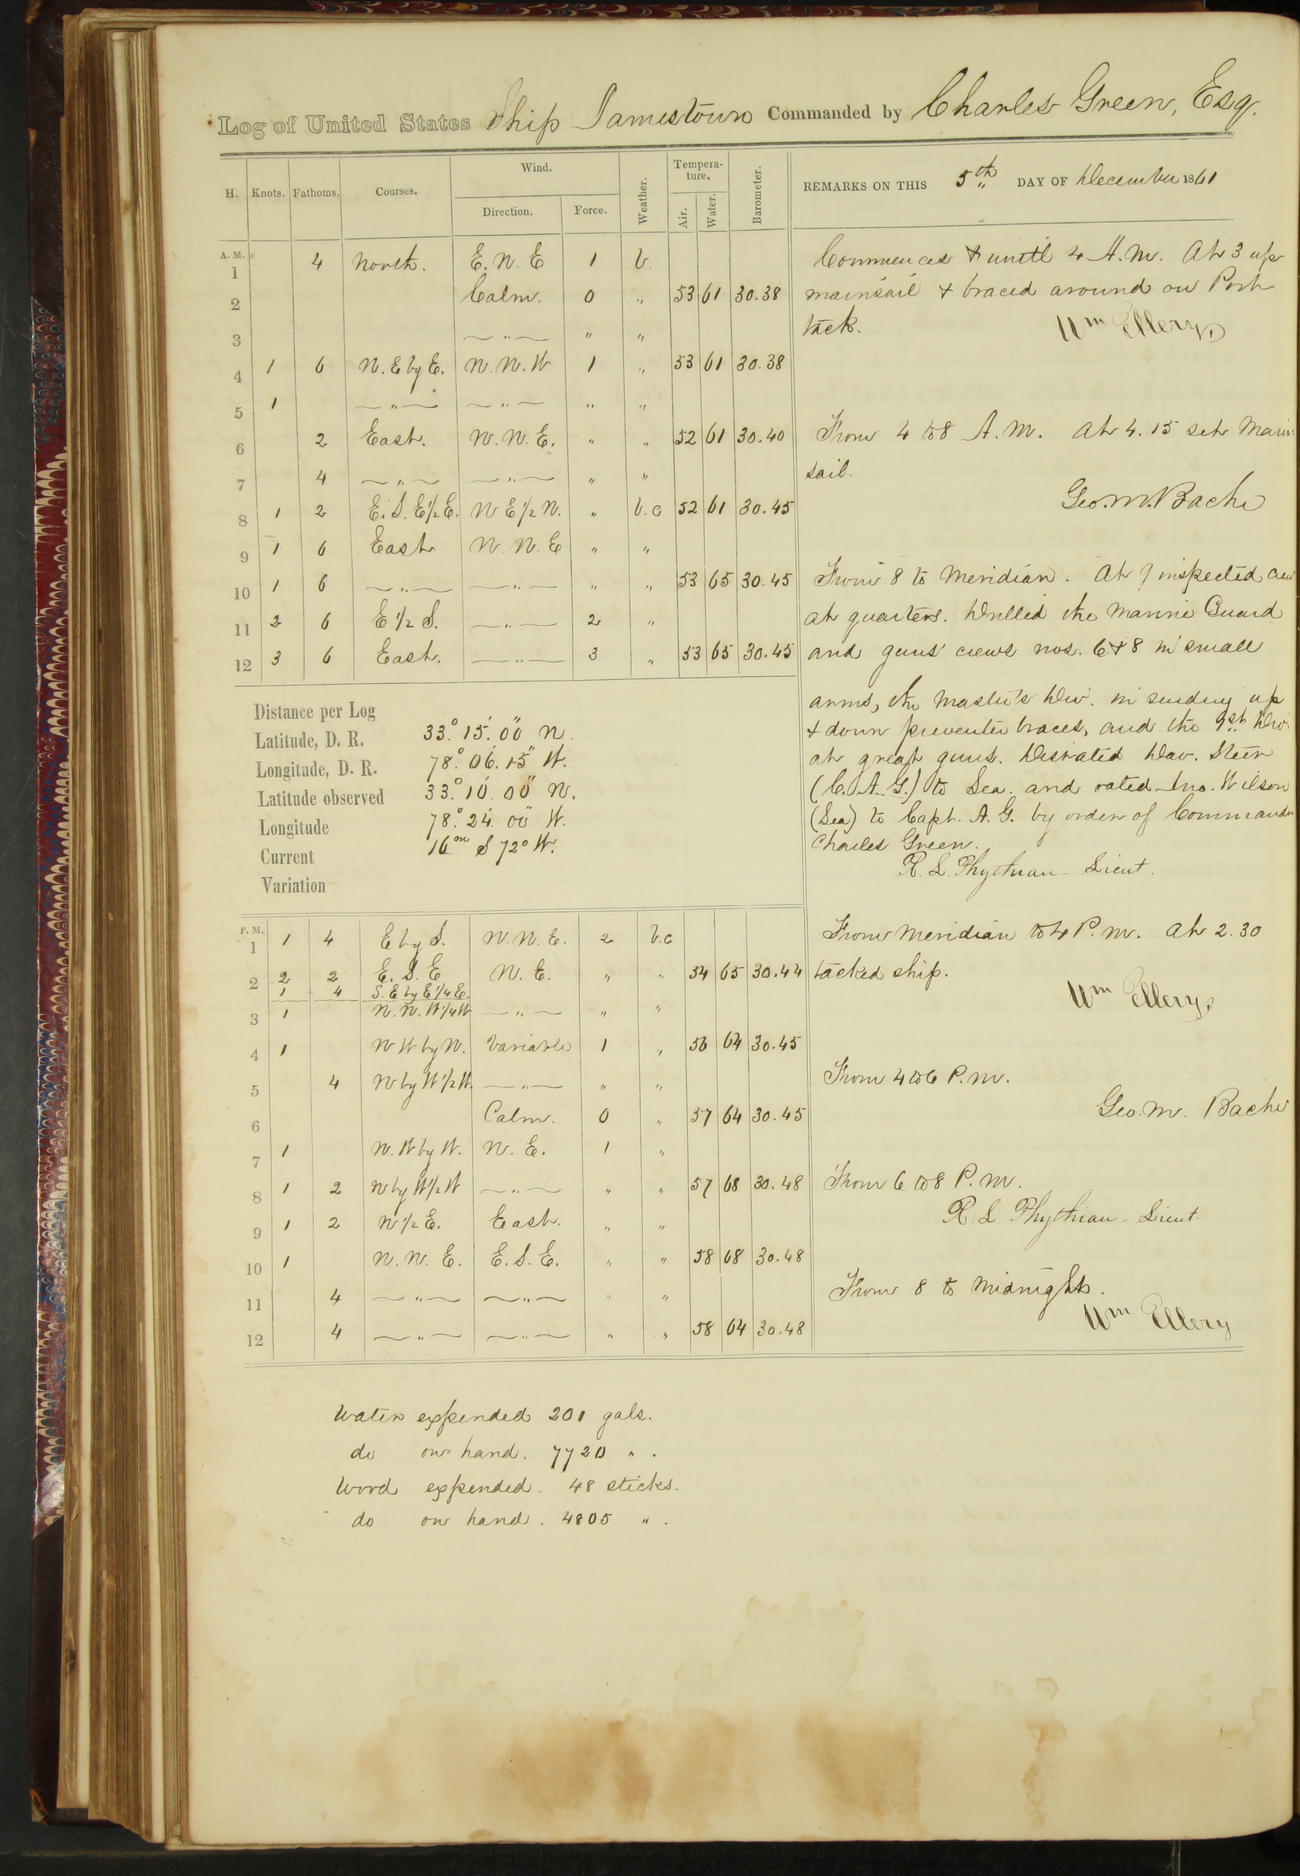 Log of United States Ship Jamestown Commanded by Charles Green, Esq.
H. Knots. Fathoms. Courses. Wind. Direction. Force. Weather. Temperature. Air. Water. Barometer. REMARKS ON THIS 5th DAY OF December 1861
A. M.
1 4 North. E. N. E 1 b.
2 Calm. 0 „ 53 61 30.38
3 —„— „ „
4 1 6 N. E by E. N. N. W 1 „ 53 61 30.38
5 1 —„— —„— „ „
6 2 East. N. N. E. „ „ 52 61 30.40
7 4 —„— —„— „ „
8 1 2 E. S. E 1/2 E. N E 1/2 N. „ b.c 52 61 30.45
9 1 6 East N. N. E „ „
10 1 6 —„— —„— „ „ 53 65 30.45
11 2 6 E 1/2 S. —„— 2 „
12 3 6 East. —„— 3 „ 53 65 30.45
Commences & until 4 A.M. At 3 up
mainsail & braced around on Port
tack.
Wm Ellery
From 4 to 8 A.M. At 4.15 set Main-
sail.
Geo. M. Bache
From 8 to Meridian. At 9 inspected crew
at quarters. Drilled the Marine Guard
and guns' crews nos. 6 & 8 in small
arms, the Master's Div. in sending up
& down preventer braces, and the 1st Div.
at great guns. Disrated Dav. Steen
(C. A. G.) to Sea. and rated Jno. Wilson
(Sea) to Capt. A. G. by order of Commander
Charles Green.
R. L. Phythian - Lieut.
Distance per Log
Latitude, D. R. 33° 15' 00" N.
Longitude, D. R. 78° 06' 15" W.
Latitude observed 33° 10' 00" N.
Longitude 78° 24' 00" W.
Current 16m S 72° W.
Variation
P. M.
1 1 4 E by S. N. N. E. 2 b.c
2 2 2 E. S. E N. E. „ „ 54 65 30.44
1 4 S. E by E 1/4 E.
3 1 N. N. W 1/4 W —„— „ „
4 1 N W by N. Variable 1 „ 56 64 30.45
5 4 N by W 1/2 W. —„— „ „
6 Calm. 0 „ 57 64 30.45
7 1 N. W by W. N. E. 1 „
8 1 2 N by W 1/2 W —„— „ „ 57 68 30.48
9 1 2 N 1/2 E. East. „ „
10 1 N. N. E. E. S. E. „ „ 58 68 30.48
11 4 —„— —„— „ „
12 4 —„— —„— „ „ 58 64 30.48
From Meridian to 4 P.M. At 2.30
tacked ship.
Wm Ellery
From 4 to 6 P.M.
Geo. M. Bache
From 6 to 8 P.M.
R. L. Phythian - Lieut.
From 8 to Midnight.
Wm Ellery
Water expended 201 gals.
do on hand. 7720 „ .
Wood expended. 48 sticks.
do on hand. 4805 „ .